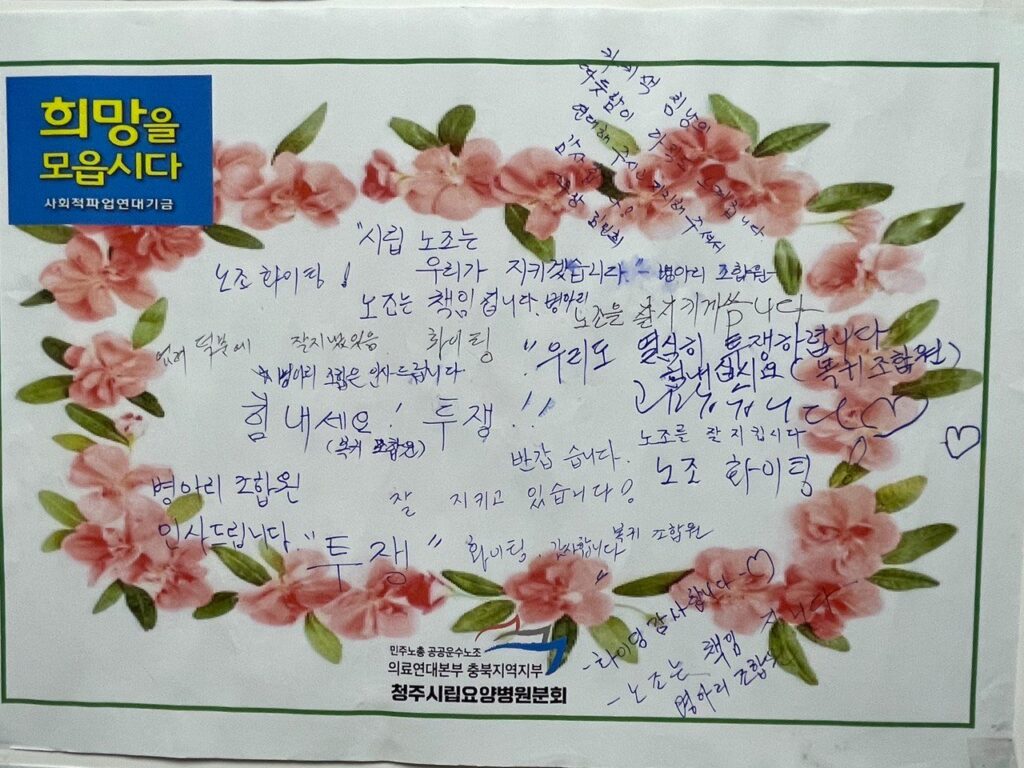 희망을
모읍시다
사회적파업연대기금
따뜻함이
연대해 주시고 지지해 주셔서
"시립 노조는
우리가 지키겠습니다" -병아리 조합원-
노조 화이팅!
노조는 책임집니다. 병아리
노조을 잘 지키게씀니다
덕분에 잘지냈있음 화이팅
"우리도 열심히 투쟁하렵니다
병아리 조합은 인사드립니다
힘내십시요 (복귀 조합원)
힘내세요! 투쟁!!
(복귀 조합원)
고맙습니다
노조를 잘 지킵시다
반갑습니다.
노조 화이팅
병아리 조합원
인사드립니다.
잘 지키고 있습니다!
"투쟁"
화이팅. 감사합니다
복귀 조합원
-화이팅 감사합니다-
-노조는 책임 집니다
병아리 조합원
민주노총 공공운수노조
의료연대본부 충북지역지부
청주시립요양병원분회